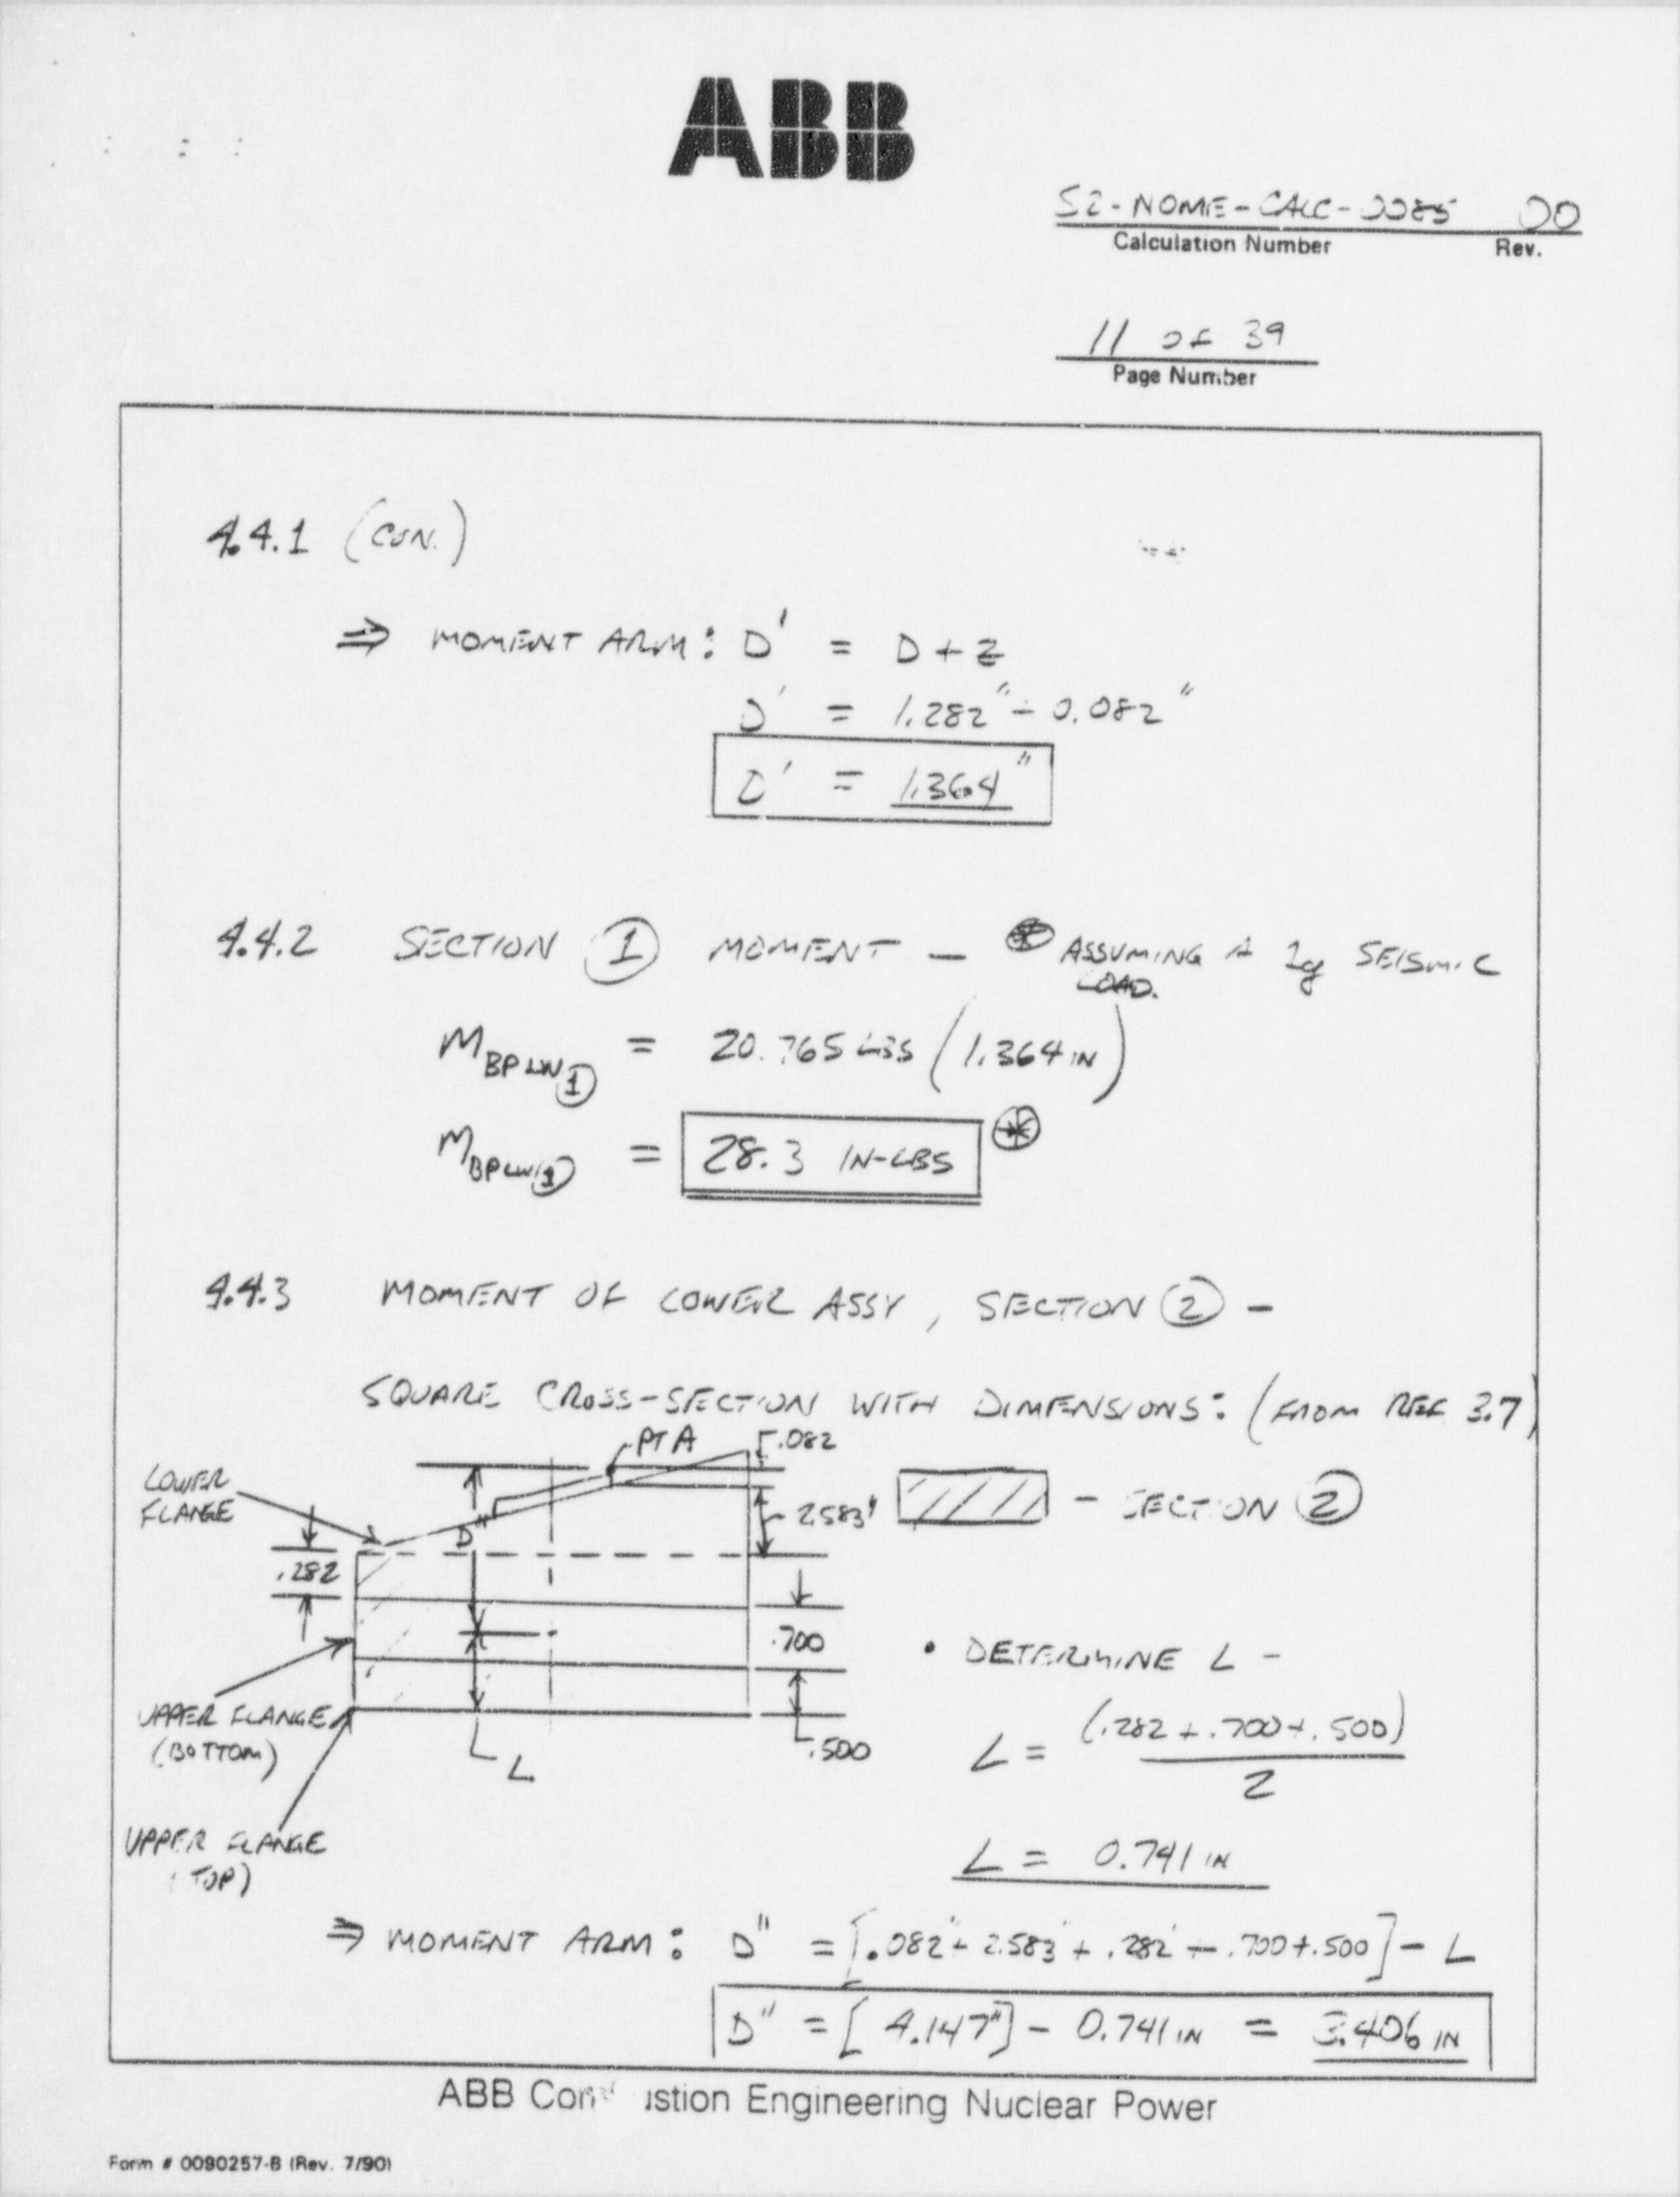 ABB
S2-NOME-CALC-0085 00
Calculation Number Rev.
11 OF 39
Page Number
4.4.1 (CON.)
⇒ MOMENT ARM: D' = D + Z
D' = 1.282" + 0.082"
D' = 1.364"
4.4.2 SECTION ① MOMENT - ⊛ ASSUMING A 1g SEISMIC
LOAD.
M BPLW① = 20.765 LBS (1.364 IN)
M BPLW① = 28.3 IN-LBS ⊛
4.4.3 MOMENT OF LOWER ASSY, SECTION ② -
SQUARE CROSS-SECTION WITH DIMENSIONS: (FROM REF 3.7)
PT A .082
LOWER
FLANGE
D" 2.583" - SECTION ②
.282
.700
• DETERMINE L -
UPPER FLANGE
(BOTTOM)
.500
L
L = (.282 + .700 + .500)
2
UPPER FLANGE
(TOP)
L = 0.741 IN
⇒ MOMENT ARM: D" = [.082 + 2.583 + .282 + .700 + .500] - L
D" = [4.147"] - 0.741 IN = 3.406 IN
ABB Com ustion Engineering Nuclear Power
Form # 0090257-B (Rev. 7/90)